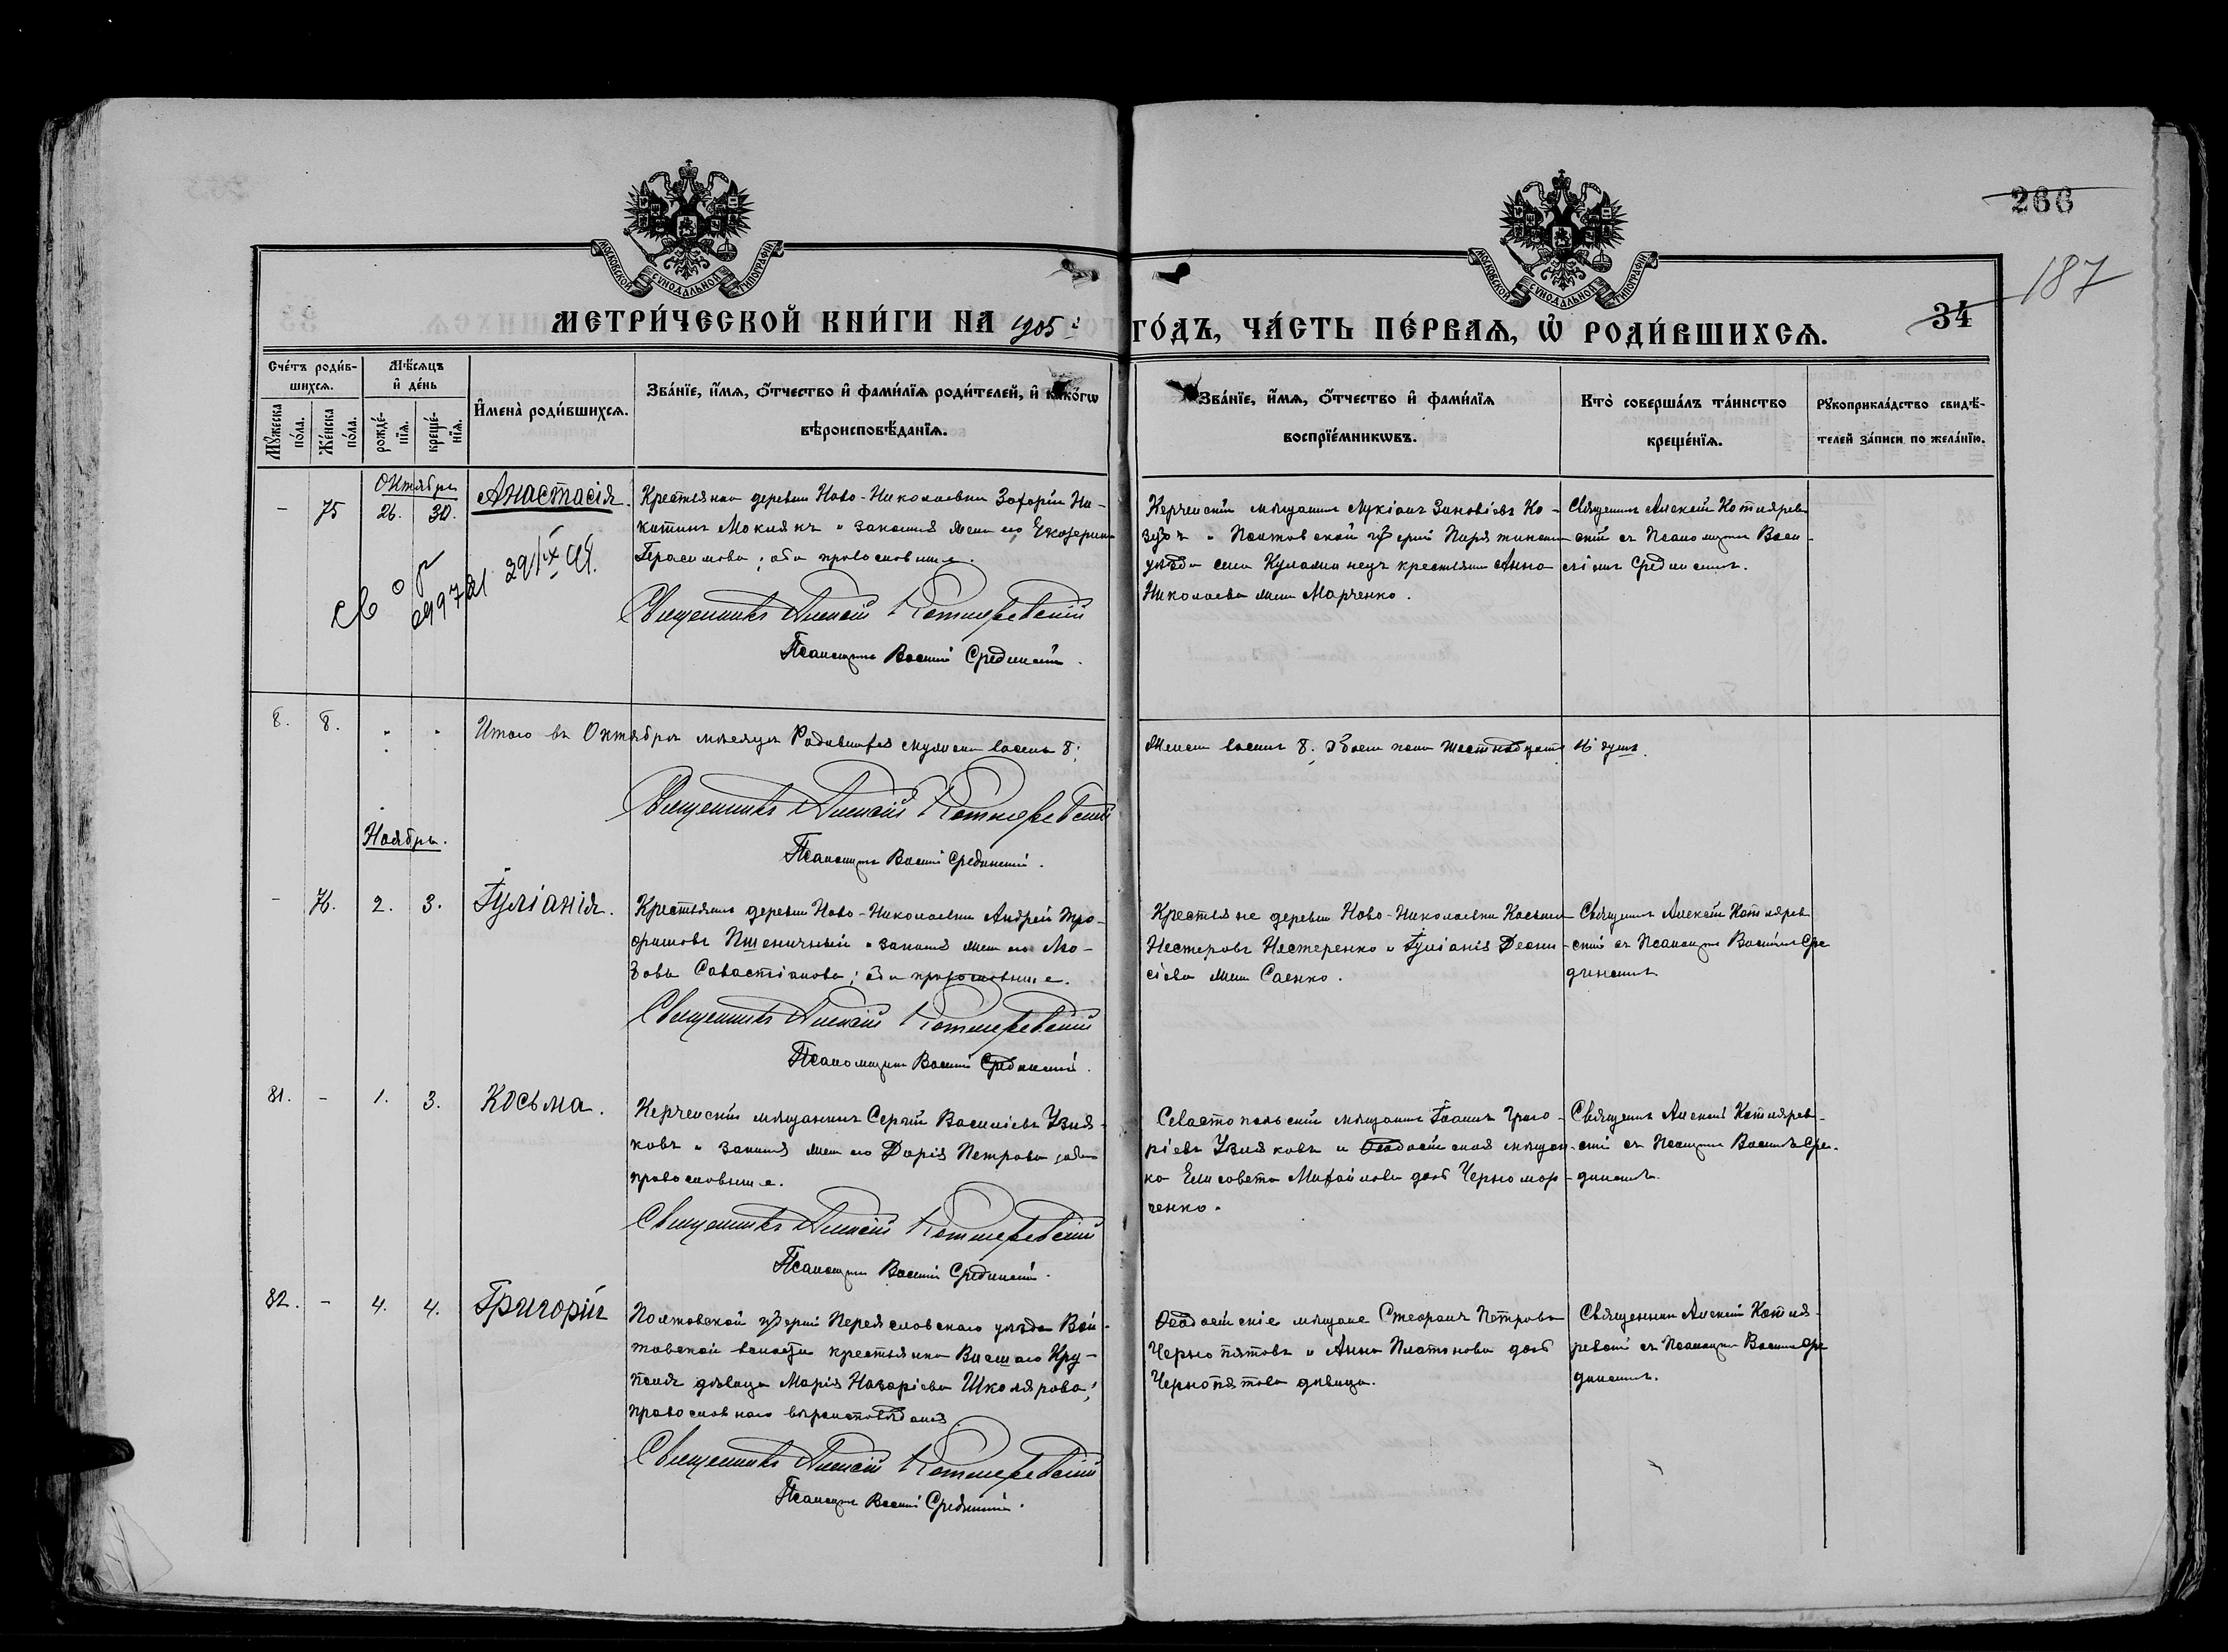 266
187
34
МОСКОВСКОЙ СѴНОДАЛЬНОЙ ТИПОГРАФІИ
МОСКОВСКОЙ СѴНОДАЛЬНОЙ ТИПОГРАФІИ
МЕТРИ́ЧЕСКОЙ КНИ́ГИ НА 1905 ГО́ДЪ, ЧА́СТЬ ПЕ́РВАѦ, Ѡ҆ РОДИ́ВШИХСѦ.
Сче́тъ роди́вшихсѧ.
Мꙋ́жеска по́ла.
Же́нска по́ла.
Мѣ́сѧцъ и҆ де́нь
рожде́нїѧ.
креще́нїѧ.
И҆мена̀ роди́вшихсѧ.
Зва́нїе, и҆́мѧ, ѻ҆́тчество и҆ фами́лїѧ роди́телей, и҆ како́гѡ вѣроисповѣ́данїѧ.
Зва́нїе, и҆́мѧ, ѻ҆́тчество и҆ фами́лїѧ воспрїе́мникѡвъ.
Кто̀ соверша́лъ та́инство креще́нїѧ.
Рꙋкоприкла́дство свидѣ́телей за́писи по жела́нїю.
Октябрь
- 75 26. 30. Анастасія.
Крестьянинъ деревни Ново-Николаевки Захарій Ни-
китинъ Мокіякъ и законная жена его Екатерина
Герасимова; оба православные.
Священникъ Алексій Котляревскій
Псаломщикъ Василій Срединскій.
Керченскій мѣщанинъ Лукіанъ Зиновіевъ Ко-
зубъ и Полтавской губерніи Пирятинскаго
уѣзда села крестьянка Анна
Николаева Марченко.
Священникъ Алексій Котлярев-
скій съ Псаломщикомъ Васи-
ліемъ Срединскимъ.
8. 8. " " Итого въ Октябрѣ мѣсяцѣ Родившихся мужеска восемь 8;
Женска восемь 8; обоего пола шестнадцать 16 душъ.
Священникъ Алексій Котляревскій
Псаломщикъ Василій Срединскій.
Ноябрь.
- 76. 2. 3. Іуліанія.
Крестьянинъ деревни Ново-Николаевки Андрей Тро-
фимовъ Пшеничный и законная жена его Лю-
бовь Савастіанова; оба православные.
Священникъ Алексій Котляревскій
Псаломщикъ Василій Срединскій.
Крестьяне деревни Ново-Николаевки Косьма
Нестеровъ Нестеренко и Іуліанія Деони-
сіева жена Саенко.
Священникъ Алексій Котлярев-
скій съ Псаломщикомъ Василіемъ Сре-
динскимъ
81. - 1. 3. Косьма.
Керченскій мѣщанинъ Сергій Василіевъ Узля-
ковъ и законная жена его Дарія Петрова; оба
православные.
Священникъ Алексій Котляревскій
Псаломщикъ Василій Срединскій.
Севастопольскій мѣщанинъ Іоаннъ Григо-
ріевъ Узляковъ и Ѳеодосійская мѣщан-
ка Елисавета Михайлова дочь Черномор-
ченко.
Священникъ Алексій Котлярев-
скій съ Псаломщикомъ Василіемъ Сре-
динскимъ.
82. - 4. 4. Григорій
Полтавской губерніи Переяславскаго уѣзда Вой-
товской волости крестьянка
дѣвица Марія Назаріева Школярова;
православнаго вѣроисповѣданія.
Священникъ Алексій Котляревскій
Псаломщикъ Василій Срединскій.
Ѳеодосійскіе мѣщане Стефанъ Петровъ
Чернопятовъ и Анна Платонова дочь
Чернопятова дѣвица.
Священникъ Алексій Котля-
ревскій съ Псаломщикомъ Василіемъ Сре-
динскимъ.